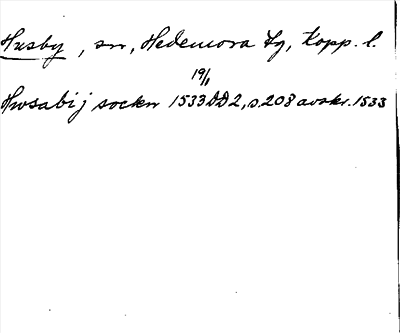 Husby, sn, Hedemora tg, Kopp. l.
19/1
Hwsabij sockn 1533 DD 2, s. 208 avskr. 1533